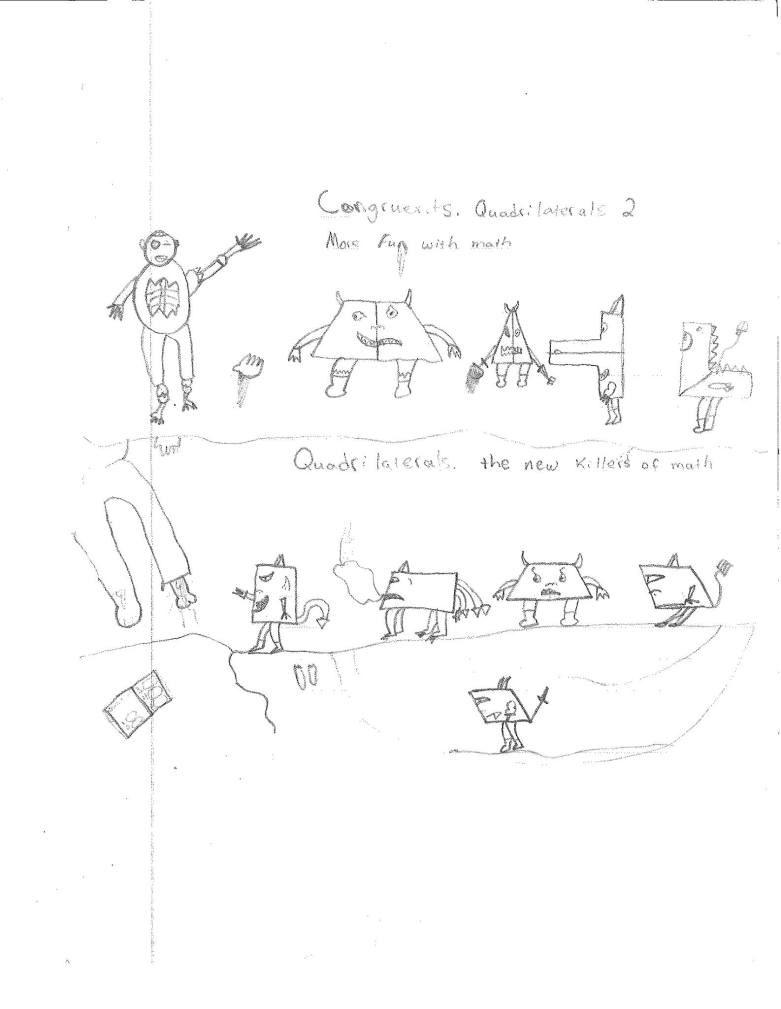 Congruents. Quadrilaterals 2
More Fun with math
Quadrilaterals. the new killers of math